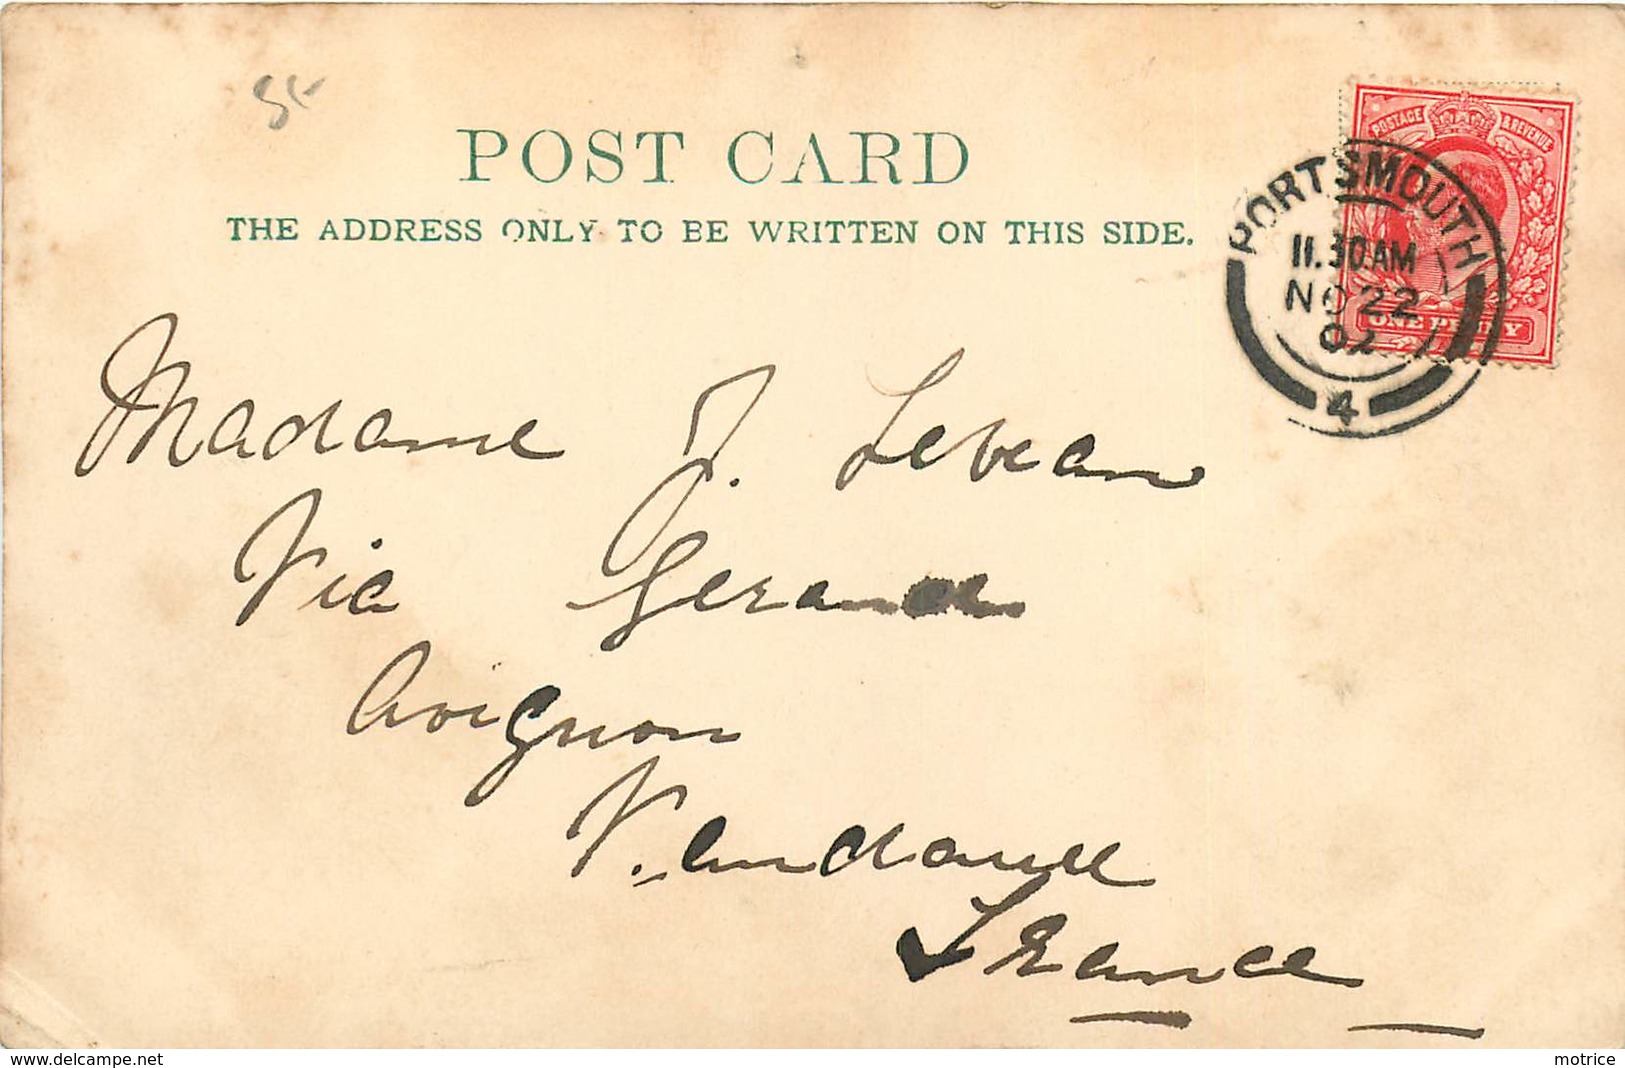 POST CARD
THE ADDRESS ONLY TO BE WRITTEN ON THIS SIDE.
POSTAGE & REVENUE
ONE PENNY
PORTSMOUTH
11.30AM
NO 22
02
4
Madame J. Lebean
Via Gerande
Avignon
Vendause
France
www.delcampe.net
motrice